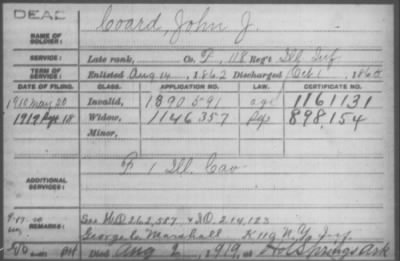 DEAD
Coard, John J.
NAME OF SOLDIER:
SERVICE: Late rank, Co. F, 118 Reg't Ill. Inf.
TERM OF SERVICE: Enlisted Aug 14, 1862 Discharged Oct 1, 186
DATE OF FILING. CLASS. APPLICATION NO. LAW. CERTIFICATE NO.
1910 May 20 Invalid, 1390591 age 1161131
1919 Sep 18 Widow, 1146357 Sep 898154
Minor,
ADDITIONAL SERVICES: F 1 Ill. Cav
REMARKS: See 262,587 & 214,123
George C. Marshall K 119 N.Y. Inf
Died Aug 1919, at Hot Springs Ark